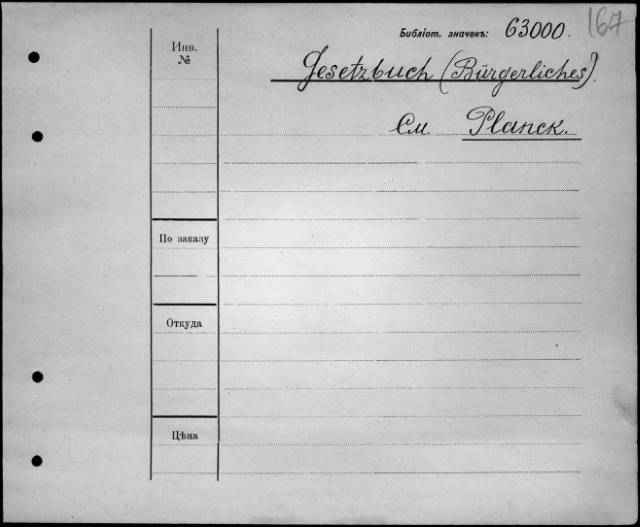 167
Библіот. значекъ: 63000.
Инв.
№
Gesetzbuch (Bürgerliches).
См. Planck.
По заказу
Откуда
Цѣна